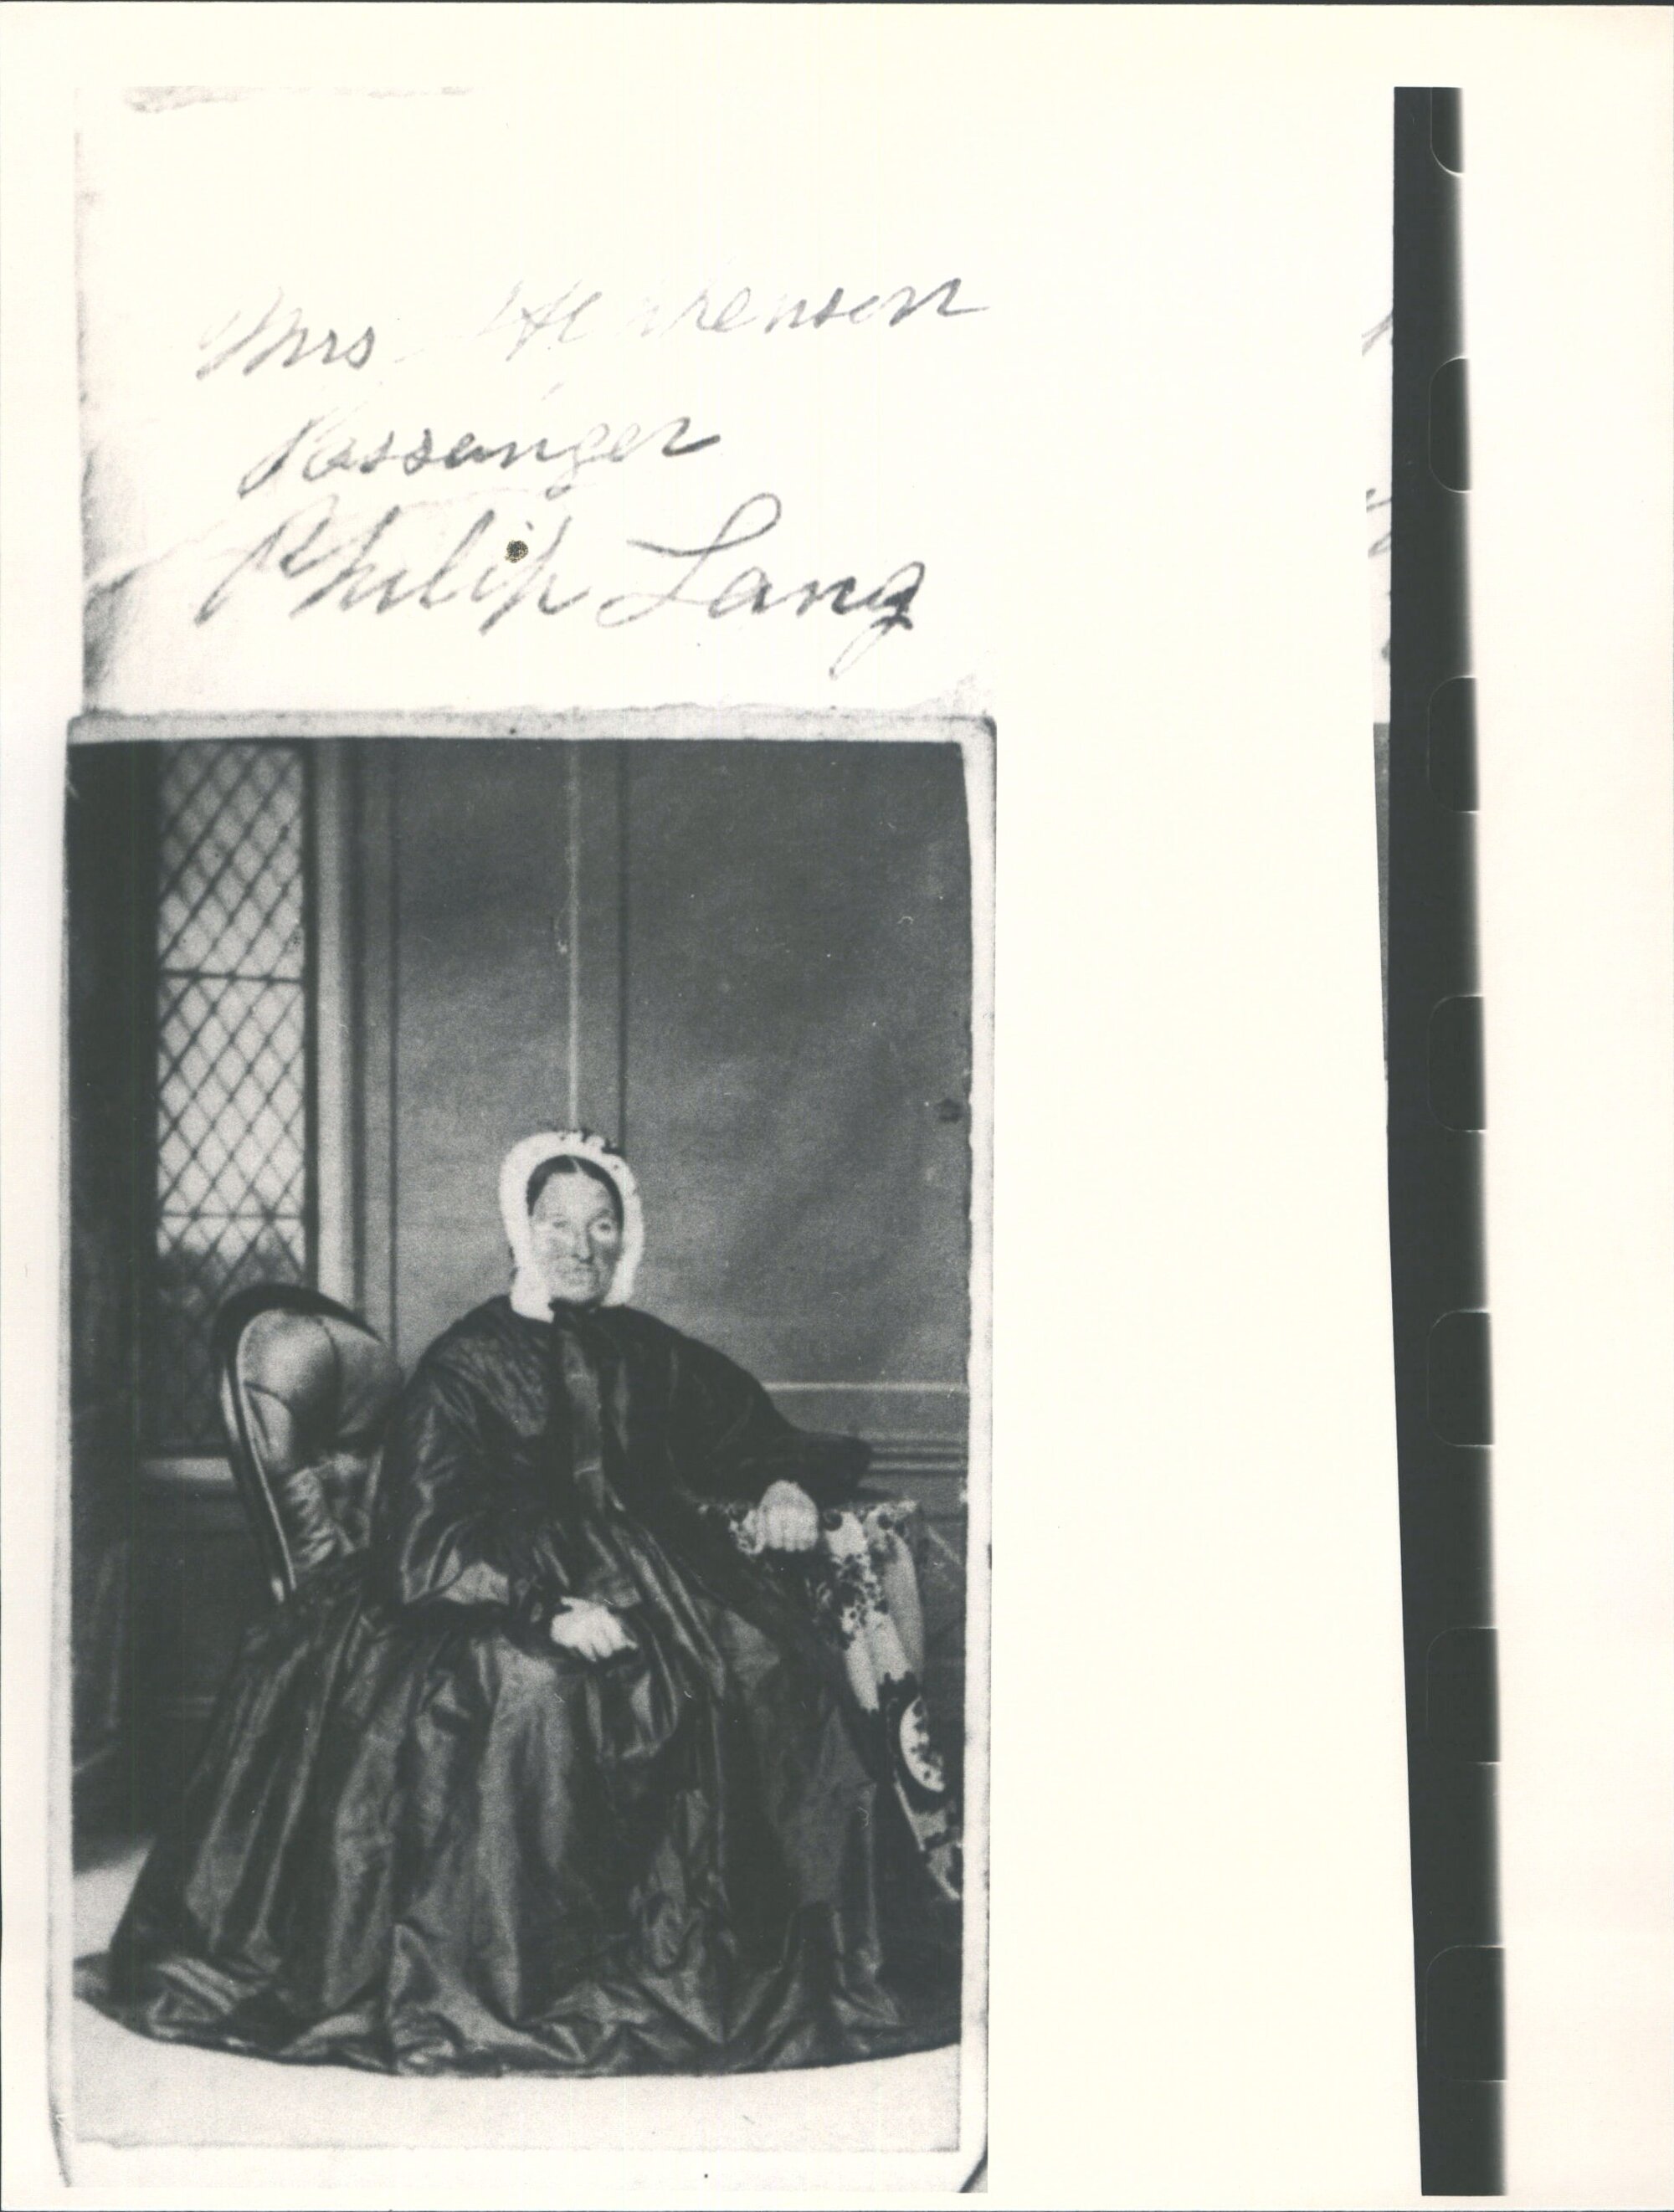 Mrs
Passenger
Philip Lang